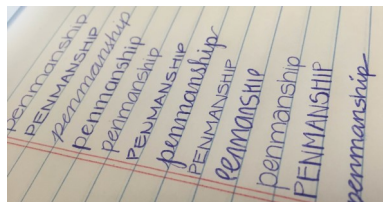 penmanship
PENMANSHIP
penmanship
penmanship
penmanship
PENMANSHIP
penmanship
PENMANSHIP
penmanship
penmanship
PENMANSHIP
penmanship